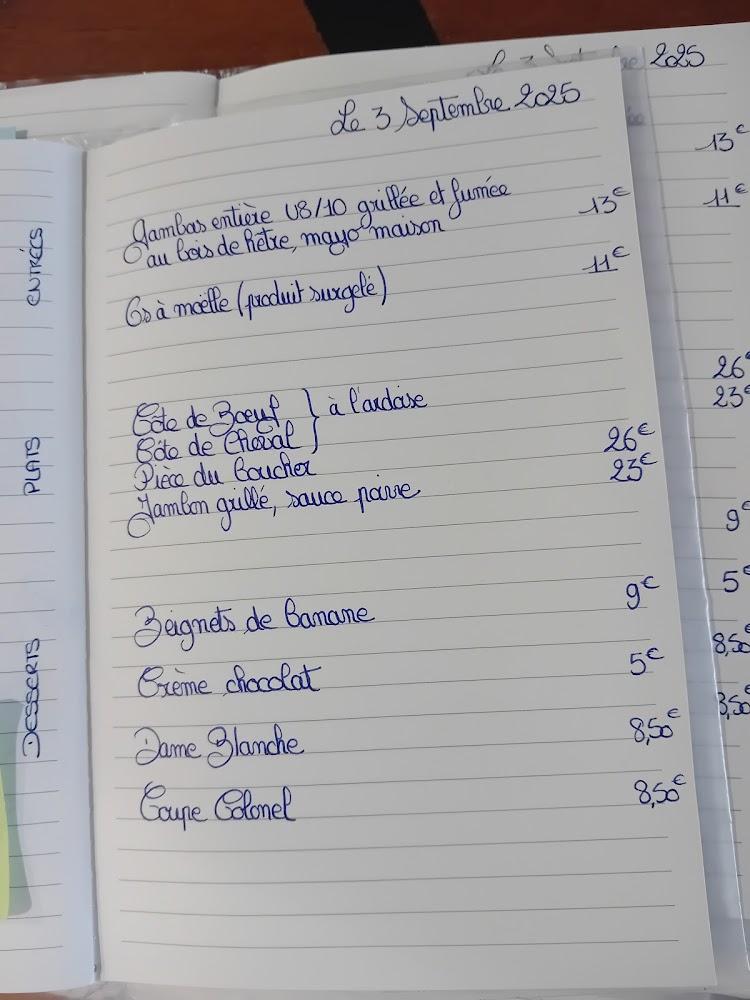 Le 3 Septembre 2025
2025
13€
11€
ENTRÉES
Gambas entière U8/10 grillée et fumée
au bois de hêtre, mayo maison 13€
Os à moëlle (produit surgelé) 11€
26€
23€
PLATS
Côte de Bœuf } à l'ardoise
Côte de Cheval
Pièce du Boucher 26€
Jambon grillé, sauce poivre 23€
9€
5€
8,50
8,50
DESSERTS
Beignets de banane 9€
Crème chocolat 5€
Dame Blanche 8,50€
Coupe Colonel 8,50€